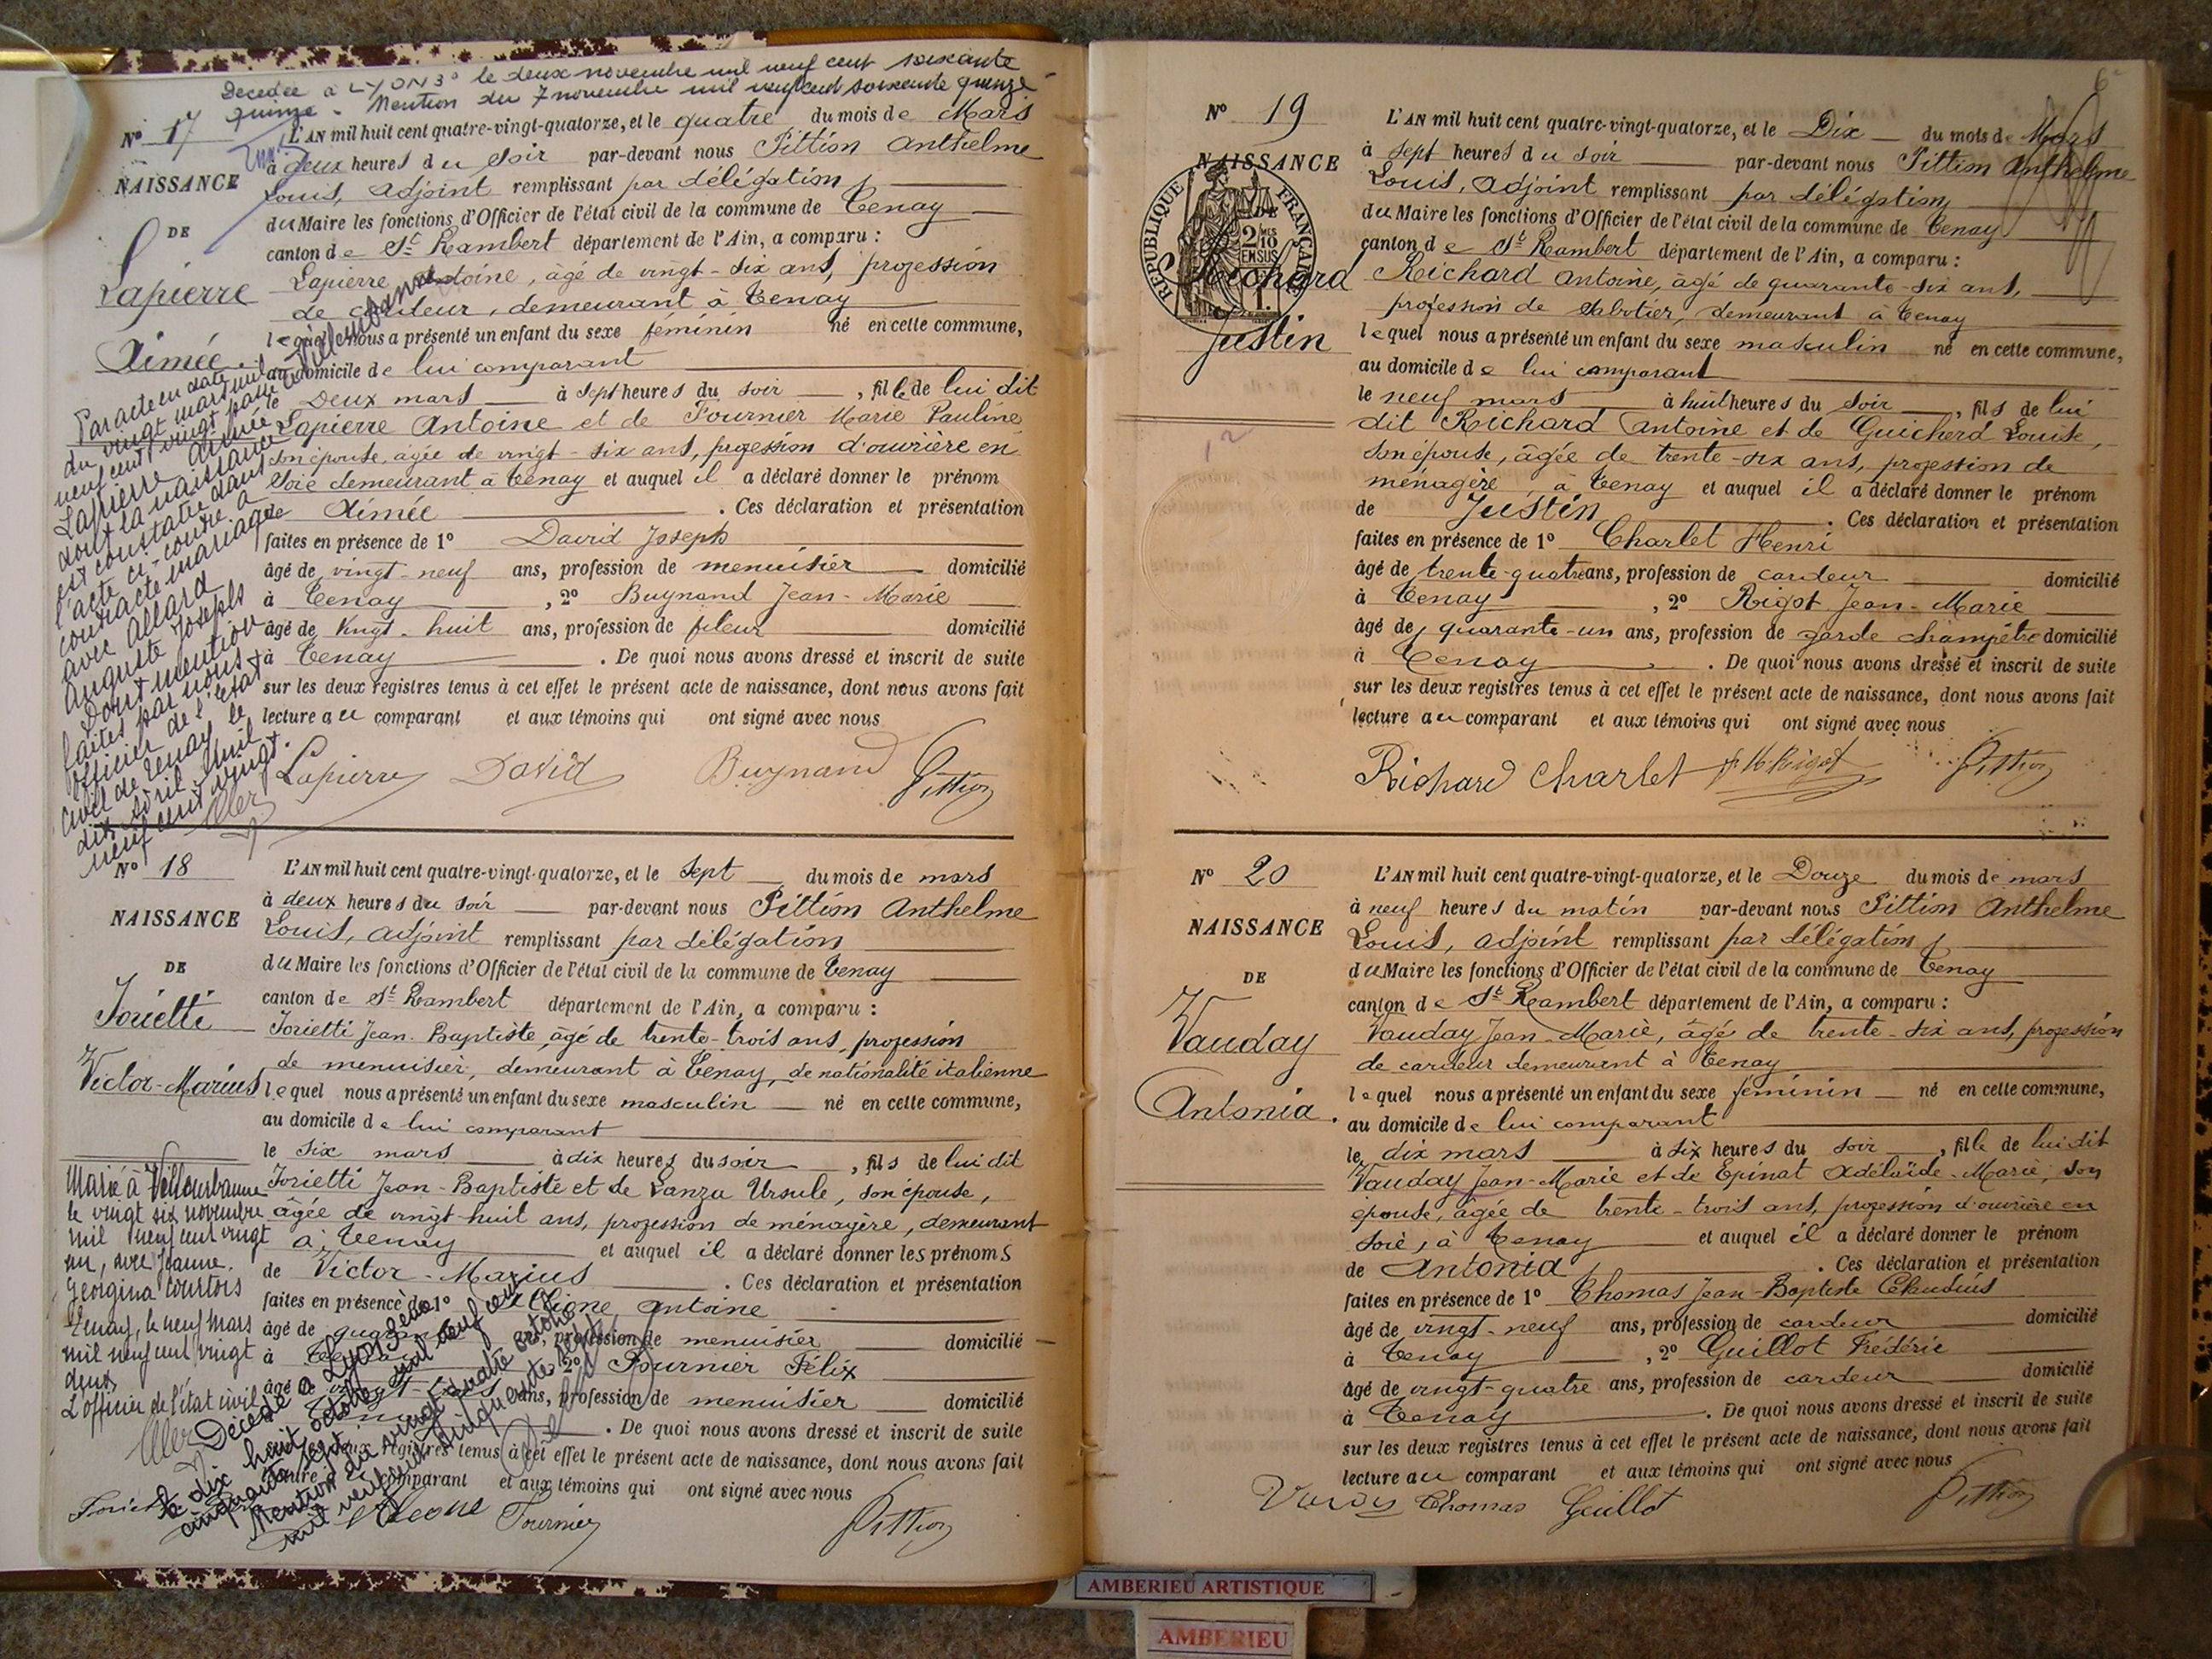 Décédée à LYON 3e le deux novembre mil neuf cent soixante
quinze - Mention du 7 novembre mil neuf cent soixante quinze
N° 17
NAISSANCE
DE
Lapierre
Aimée.
L'AN mil huit cent quatre-vingt-quatorze, et le quatre du mois de Mars
à deux heures du soir par-devant nous Pittion Anthelme
Louis, adjoint remplissant par délégation
du Maire les fonctions d'Officier de l'état civil de la commune de Tenay
canton de St Rambert département de l'Ain, a comparu :
Lapierre Antoine, âgé de vingt-six ans, profession
de cardeur, demeurant à Tenay
lequel nous a présenté un enfant du sexe féminin né en cette commune,
au domicile de lui comparant
le Deux mars à sept heures du soir, fille de lui dit
Lapierre Antoine et de Fournier Marie Pauline
son épouse, agée de vingt-six ans, profession d'ouvrière en
soie demeurant à Tenay et auquel il a déclaré donner le prénom
de Aimée. Ces déclaration et présentation
faites en présence de 1° David Joseph
âgé de vingt-neuf ans, profession de menuisier domicilié
à Tenay, 2° Buynand Jean-Marie
âgé de vingt-huit ans, profession de fileur domicilié
à Tenay. De quoi nous avons dressé et inscrit de suite
sur les deux registres tenus à cet effet le présent acte de naissance, dont nous avons fait
lecture au comparant et aux témoins qui ont signé avec nous
Lapierre David Buynand Pittion
Par acte en date
du vingt mars mil
neuf cent vingt passé à
Lapierre Aimée
dont la naissance
est constatée dans
l'acte ci-contre a
contracté mariage
avec Allard
Auguste Joseph
Dont mention
faites par nous
officier de l'état
civil de Tenay le
dix avril mil
neuf cent vingt.
N° 18
NAISSANCE
DE
Iorietti
Victor-Marius
L'AN mil huit cent quatre-vingt-quatorze, et le sept du mois de mars
à deux heures du soir par-devant nous Pittion Anthelme
Louis, adjoint remplissant par délégation
du Maire les fonctions d'Officier de l'état civil de la commune de Tenay
canton de St Rambert département de l'Ain, a comparu :
Iorietti Jean-Baptiste, âgé de trente-trois ans, profession
de menuisier, demeurant à Tenay, de nationalité italienne
lequel nous a présenté un enfant du sexe masculin né en cette commune,
au domicile de lui comparant
le six mars à dix heures du soir, fils de lui dit
Iorietti Jean-Baptiste et de Lanza Ursule, son épouse,
âgée de vingt-huit ans, profession de ménagère, demeurant
à Tenay et auquel il a déclaré donner les prénoms
de Victor-Marius. Ces déclaration et présentation
faites en présence de 1° Antoine
âgé de ans, profession de menuisier domicilié
à Tenay 2° Fournier Félix
âgé de ans, profession de menuisier domicilié
. De quoi nous avons dressé et inscrit de suite
deux registres tenus à cet effet le présent acte de naissance, dont nous avons fait
lecture au comparant et aux témoins qui ont signé avec nous
Fournier Pittion
Marié à Villeurbanne
le vingt six novembre
mil neuf cent vingt
un, avec Jeanne
Georgina Courtois
Tenay, le neuf mars
mil neuf cent vingt
deux
L'officier de l'état civil
Décédé à Lyon 3eme
le dix huit octobre mil neuf cent
cinquante sept.
Mention du vingt quatre octobre
mil neuf cent cinquante sept
N° 19
NAISSANCE
DE
Richard
Justin
RÉPUBLIQUE FRANÇAISE
2 MES
10
EN SUS
L'AN mil huit cent quatre-vingt-quatorze, et le Dix du mois de Mars
à sept heures du soir par-devant nous Pittion Anthelme
Louis, adjoint remplissant par délégation
du Maire les fonctions d'Officier de l'état civil de la commune de Tenay
canton de St Rambert département de l'Ain, a comparu :
Richard Antoine, âgé de quarante-six ans,
profession de sabotier, demeurant à Tenay
lequel nous a présenté un enfant du sexe masculin né en cette commune,
au domicile de lui comparant
le neuf mars à huit heures du soir, fils de lui
dit Richard Antoine et de Guicherd Louise,
son épouse, âgée de trente-six ans, profession de
ménagère, à Tenay et auquel il a déclaré donner le prénom
de Justin. Ces déclaration et présentation
faites en présence de 1° Charlet Henri
âgé de trente-quatre ans, profession de cardeur domicilié
à Tenay, 2° Rigot Jean-Marie
âgé de quarante-un ans, profession de garde champêtre domicilié
à Tenay. De quoi nous avons dressé et inscrit de suite
sur les deux registres tenus à cet effet le présent acte de naissance, dont nous avons fait
lecture au comparant et aux témoins qui ont signé avec nous
Richard Charlet Rigot Pittion
N° 20
NAISSANCE
DE
Vauday
Antonia.
L'AN mil huit cent quatre-vingt-quatorze, et le Douze du mois de mars
à neuf heures du matin par-devant nous Pittion Anthelme
Louis, adjoint remplissant par délégation
du Maire les fonctions d'Officier de l'état civil de la commune de Tenay
canton de St Rambert département de l'Ain, a comparu :
Vauday Jean-Marie, âgé de trente-six ans, profession
de cardeur demeurant à Tenay
lequel nous a présenté un enfant du sexe féminin né en cette commune,
au domicile de lui comparant
le dix mars à six heures du soir, fille de lui dit
Vauday Jean-Marie et de Epinat Adélaïde-Marie, son
épouse, agée de trente-trois ans, profession d'ouvrière en
soie, à Tenay et auquel il a déclaré donner le prénom
de Antonia. Ces déclaration et présentation
faites en présence de 1° Thomas Jean-Baptiste Claudius
âgé de vingt-neuf ans, profession de cardeur domicilié
à Tenay, 2° Guillot Frédéric
âgé de vingt-quatre ans, profession de cardeur domicilié
à Tenay. De quoi nous avons dressé et inscrit de suite
sur les deux registres tenus à cet effet le présent acte de naissance, dont nous avons fait
lecture au comparant et aux témoins qui ont signé avec nous
Thomas Guillot Pittion
AMBERIEU ARTISTIQUE
AMBERIEU